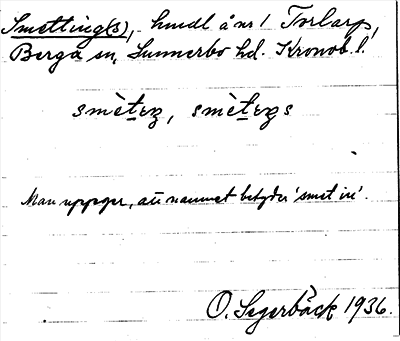 Smetting(s), hmdl å nr 1 Torlarp,
Berga sn, Sunnerbo hd. Kronob. l.
smètɩŋ, smètɩŋs
Man uppger, att namnet betyder 'smet in'.
O. Segerbäck 1936.